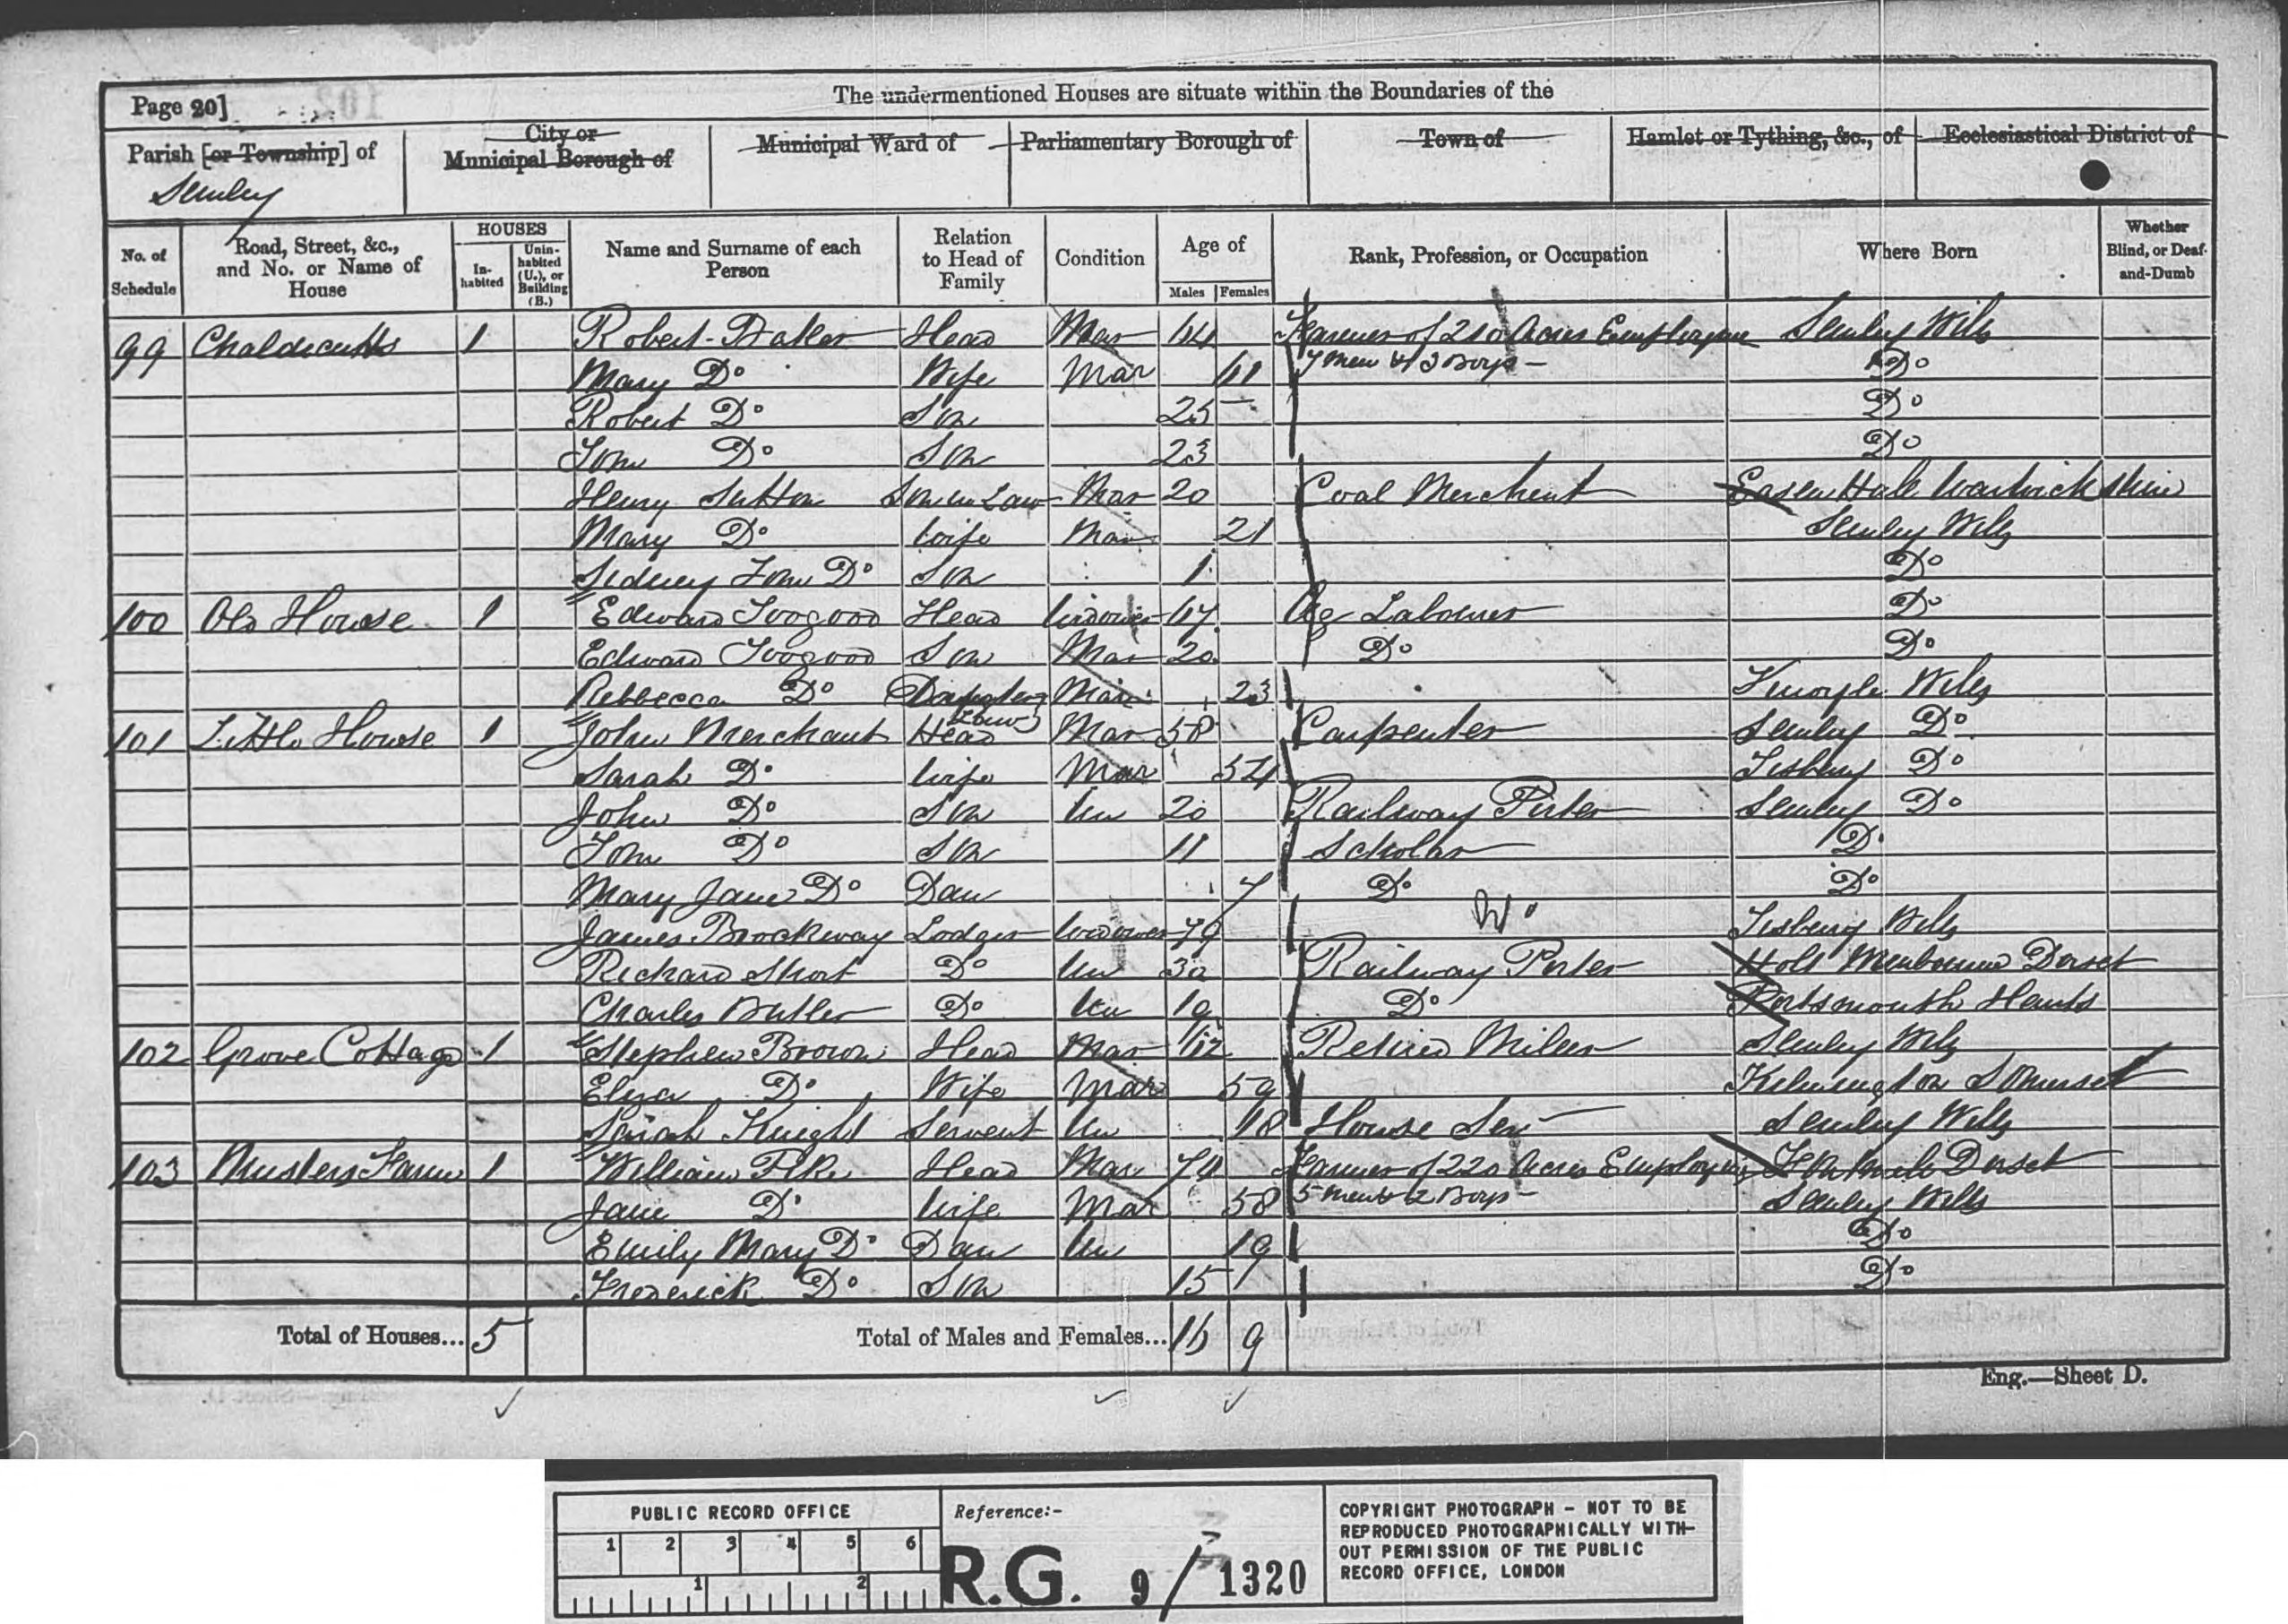 Page 20]
The undermentioned Houses are situate within the Boundaries of the
Parish [or Township] of
City or Municipal Borough of
Municipal Ward of
Parliamentary Borough of
Town of
Hamlet or Tything, &c., of
Ecclesiastical District of
Semley
No. of Schedule
Road, Street, &c., and No. or Name of House
HOUSES
In-habited
Unin-habited (U.), or Building (B.)
Name and Surname of each Person
Relation to Head of Family
Condition
Age of
Males Females
Rank, Profession, or Occupation
Where Born
Whether Blind, or Deaf-and-Dumb
99 1 Robert Baker Head Mar Farmer of 210 Acres Employing Semley Wilts
Mary Do Wife Mar 7 Men & 3 Boys Do
Robert Do Son 25 Do
Tom Do Son 23 Do
Henry Sutton Son in Law Mar 20 Coal Merchant Warwickshire
Mary Do Wife Mar 21 Semley Wilts
Sidney Tom Do Son 1 Do
100 Old House 1 Edward Toogood Head Widower Ag Labourer Do
Edward Toogood Son Mar 20 Do Do
Rebbecca Do Daughter Law Mar 23 Wilts
101 Little House 1 John Merchant Head Mar 58 Carpenter Semley Do
Sarah Do Wife Mar 54 Tisbury Do
John Do Son Un 20 Railway Porter Semley Do
Tom Do Son 11 Scholar Do
Mary Jane Do Dau 7 Do Do
James Brockway Lodger Widower 79 Tisbury Wilts
Richard Short Do Un 30 Railway Porter Holt Dorset
Charles Butler Do Un 19 Do Portsmouth Hants
102 Grove Cottage 1 Stephen Brown Head Mar Retired Miller Semley Wilts
Eliza Do Wife Mar 59 Kilmington Somerset
Sarah Knight Servent Un 18 House Ser Semley Wilts
103 Musters Farm 1 William Pike Head Mar Farmer of 220 Acres Employing Dorset
Jane Do Wife Mar 58 5 Men & 2 Boys Semley Wilts
Emily Mary Do Dau Un 19 Do
Frederick Do Son 15 Do
Total of Houses... 5
Total of Males and Females... 16 9
Eng.—Sheet D.
PUBLIC RECORD OFFICE
1 2 3 4 5 6
1 2
Reference:-
R.G. 9/1320
COPYRIGHT PHOTOGRAPH - NOT TO BE
REPRODUCED PHOTOGRAPHICALLY WITH-
OUT PERMISSION OF THE PUBLIC
RECORD OFFICE, LONDON